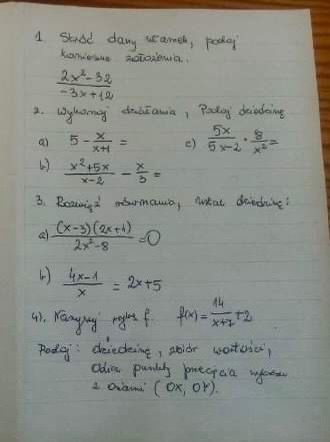 1. Skróć dany ułamek, podaj
konieczne założenia.
2x²-32 / -3x+12
2. Wykonaj działania, Podaj dziedzinę
a) 5 - x/x+1 = c) 5x/5x-2 · 8/x² =
b) x²+5x/x-2 - x/3 =
3. Rozwiąż równania, ustal dziedzinę:
a) (x-3)(2x+4)/2x²-8 = 0
b) 4x-1/x = 2x+5
4). Narysuj wykr f. f(x) = 14/x+7 + 2
Podaj: dziedzinę, zbiór wartości,
Oblicz punkty przecięcia wykresu
z osiami (OX, OY).